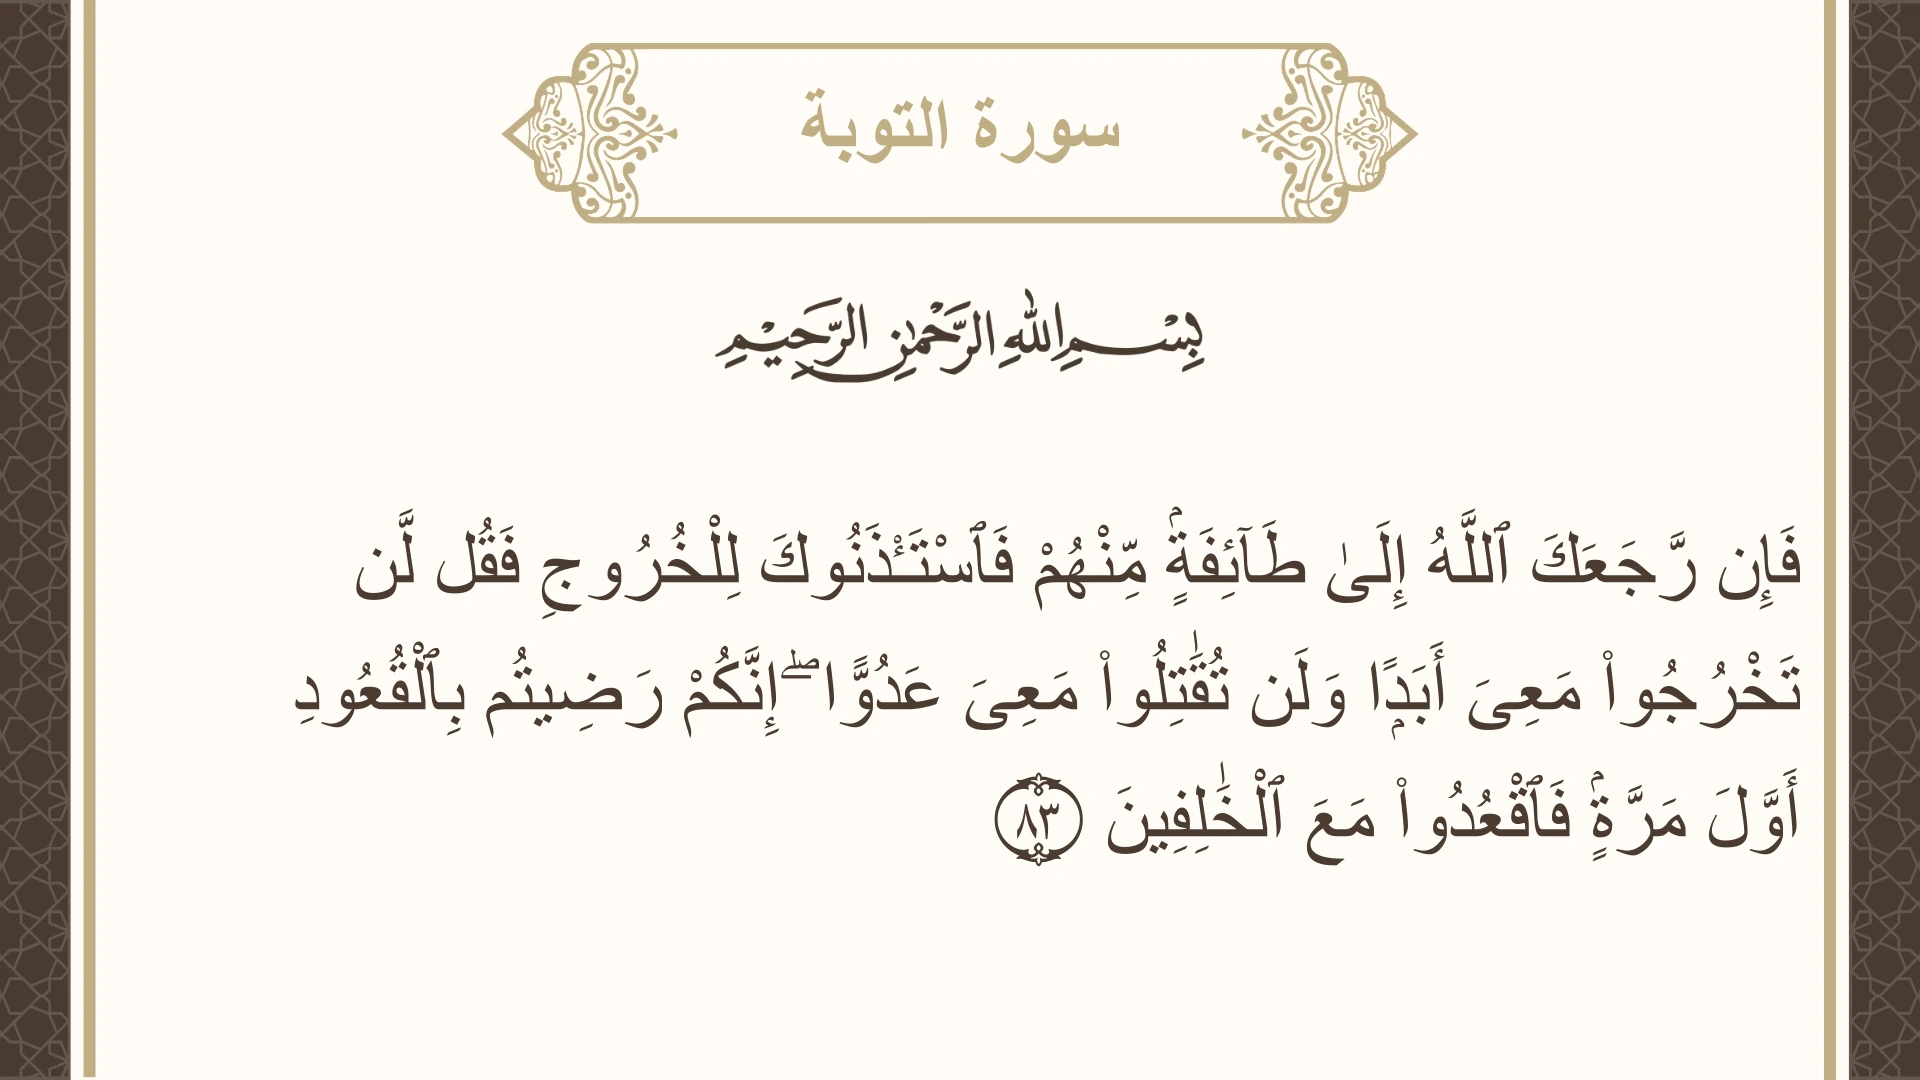 سورة التوبة
بِسْمِ اللهِ الرَّحْمٰنِ الرَّحِيْمِ
فَإِن رَّجَعَكَ ٱللَّهُ إِلَىٰ طَآئِفَةٍۢ مِّنْهُمْ فَٱسْتَـْٔذَنُوكَ لِلْخُرُوجِ فَقُل لَّن
تَخْرُجُوا۟ مَعِىَ أَبَدًۭا وَلَن تُقَـٰتِلُوا۟ مَعِىَ عَدُوًّا ۖ إِنَّكُمْ رَضِيتُم بِٱلْقُعُودِ
أَوَّلَ مَرَّةٍۢ فَٱقْعُدُوا۟ مَعَ ٱلْخَـٰلِفِينَ ٨٣